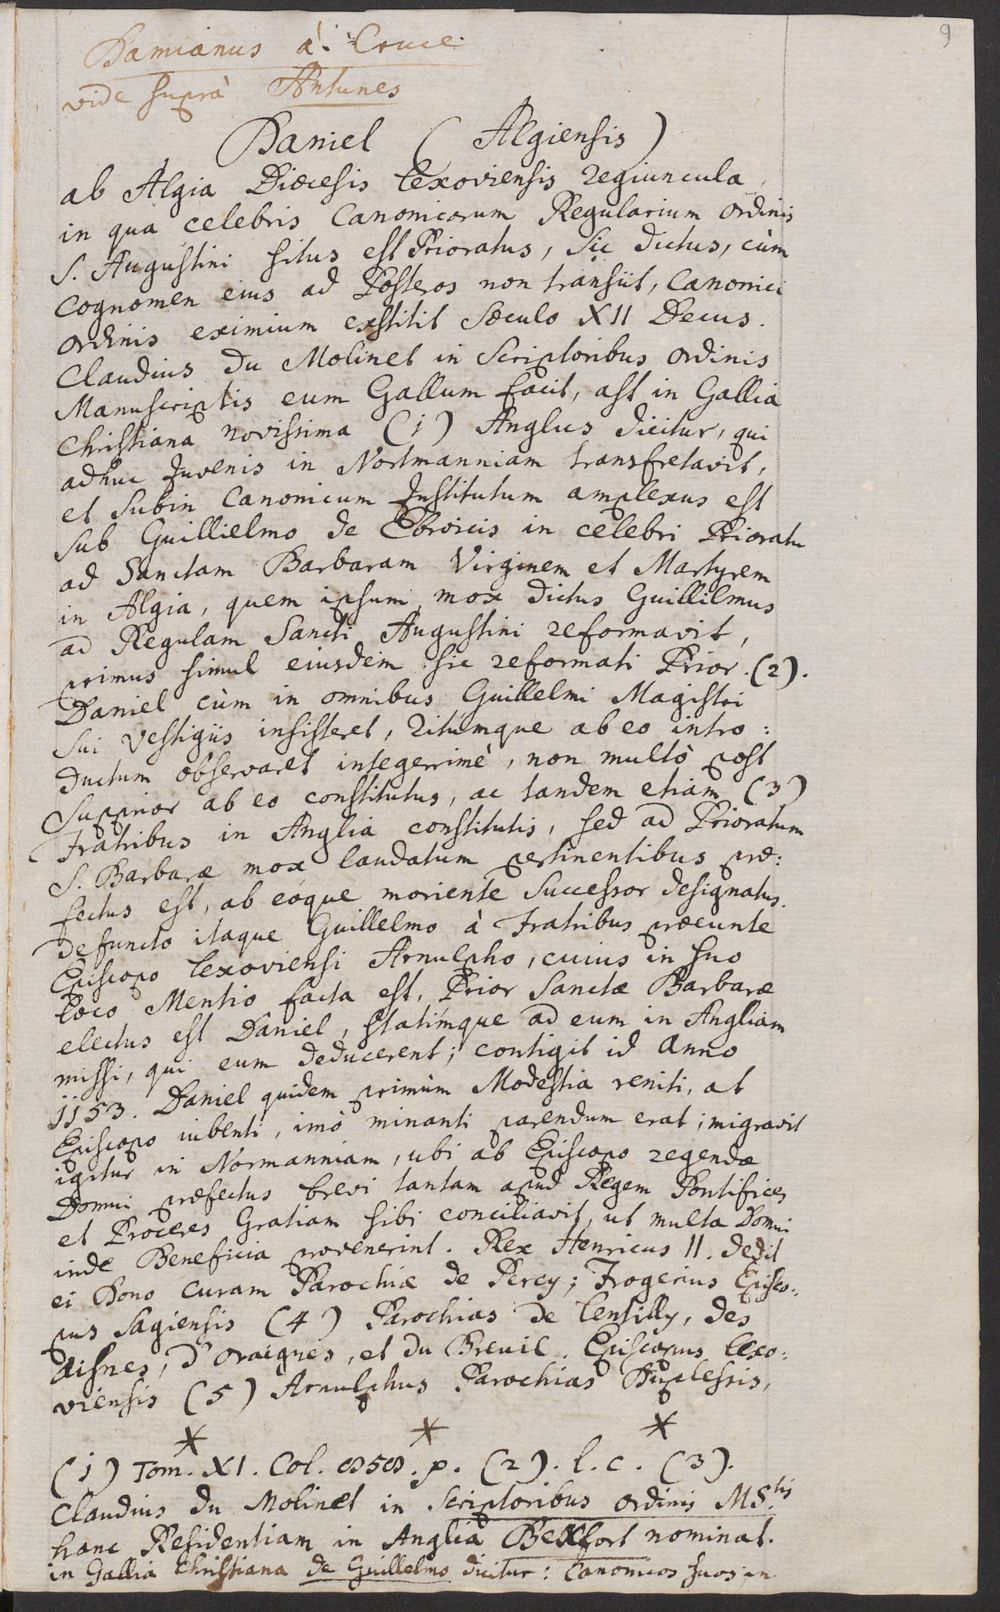 9
Damianus à Cruce
vide suprà Antunes
Daniel ( Algiensis )
ab Algia Diœcesis Lexoviensis regiuncula,
in qua celebris Canonicorum Regularium ordinis
S. Augustini situs est Prioratus, sic dictus, cùm
Cognomen eius ad Posteros non transiit, Canonici
ordinis eximium exstitit Sæculo XII Decus.
Claudius Du Molinet in Scriptoribus ordinis
Manuscriptis eum Gallum facit, ast in Gallia
Christiana novissima (1) Anglus dicitur, qui
adhuc Juvenis in Nortmanniam transfretavit,
et subin Canonicum Institutum amplexus est
sub Guillielmo de Ebroicis in celebri Prioratu
ad Sanctam Barbaram Virginem et Martyrem
in Algia, quem ipsum mox dictus Guillilmus
ad Regulam Sancti Augustini reformavit,
primus simul eiusdem sic reformati Prior. (2).
Daniel cùm in omnibus Guillelmi Magistri
sui Vestigiis insisteret, Ritumque ab eo intro:
ductum observaret integerrimè, non multò post
Supprior ab eo constitutus, ac tandem etiam (3)
Fratribus in Anglia constitutis, sed ad Prioratum
S. Barbaræ mox laudatum pertinentibus præ:
fectus est, ab eóque moriente Successor designatus.
Defuncto itaque Guillelmo à Fratribus præeunte
Episcopo Lexoviensi Arnulpho, cuius in suo
loco Mentio facta est, Prior Sanctæ Barbaræ
electus est Daniel, statimque ad eum in Angliam
missi, qui eum deducerent; contigit id Anno
1153. Daniel quidem primùm Modestia reniti, at
Episcopo iubenti, imò minanti parendum erat; migravit
igitur in Normanniam, ubi ab Episcopo regendæ
Domui præfectus brevi tantam apud Regem Pontifices
et Proceres Gratiam sibi conciliavit, ut multa Domui
inde Beneficia provenerint. Rex Henricus II. dedit
ei Dono Curam Parochiæ de Percy; Frogerius Episco:
pus Sagiensis (4) Parochias de Censilly, des
Aisnes, d'Oraignes, et du Breuil. Episcopus Lexo:
viensis (5) Arnulphus Parochias Duplessis,
* * *
(1) Tom. XI. Col. 858. p. (2). l. c. (3).
Claudius Du Molinet in Scriptoribus ordinis MS.tis
hanc Residentiam in Anglia Bexfort nominat.
in Gallia Christiana de Guillelmo dicitur: Canonicos suos in